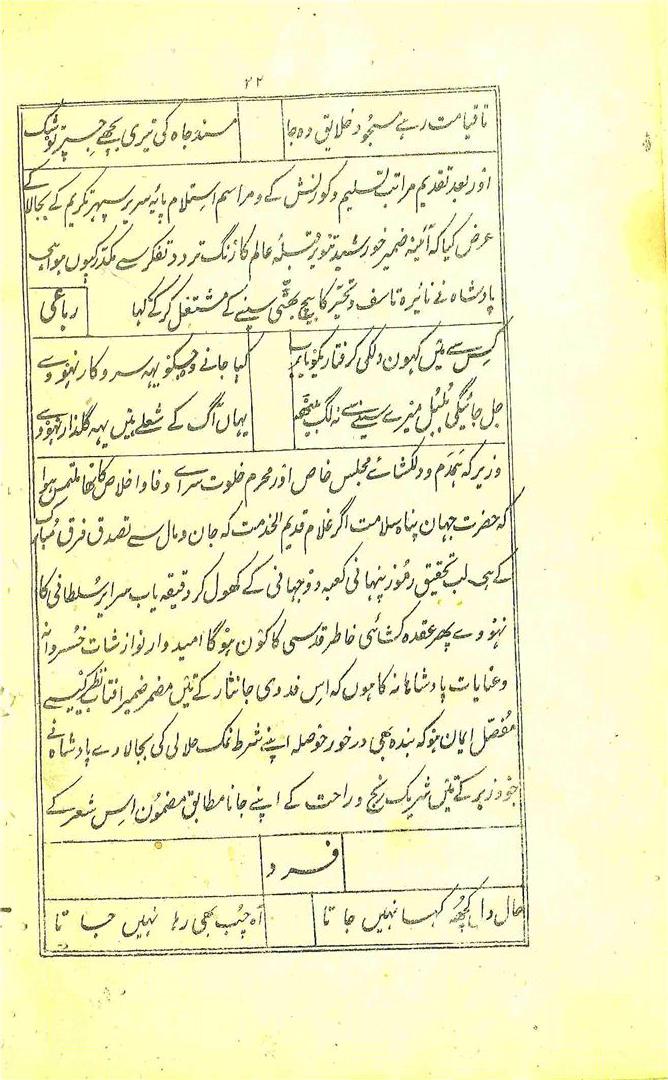 ۲۲
تا قیامت رہے مسجود خلایق وہ جا
مسند جاہ کی تیری بچھے جسپر توشک
اور بعد تقدیم مراتب تسلیم و کورنش کے و مراسم استلام پایہ سریر سپہر تکریم کے بجا لاکے
عرض کیا کہ آئینہ ضمیر خورشید تنویر قبلۂ عالم کا زنگ تردد و تفکر سے مکدر کیوں ہو
پادشاہ نے نایرہ تاسف و تحیر کا بیچ بھٹی سینے کے مشتعل کرکے کہا
رباعی
کس سے میں کہون دلکی گرفتار
کیا جانے وہ جسکو یہہ سروکار نہووے
جل جائیگی بلبل میرے سینے سے نہ لگ بیٹھ
یہاں آگ کے شعلے ہیں یہہ گلزار نہووے
وزیر کہ ہمدم و دلکشاے مجلس خاص اور محرم خلوت سراے وفا و اخلاص کا تھا ملتمس ہوا
کہ حضرت جہان پناہ سلامت اگر غلام قدیم الخدمت کہ جان و مال سے تصدق فرق مبارک
کے ہی لب تحقیق رموز پنہانی کعبہ دو جہانی کے کھول کر دقیقہ یاب سرایر سلطانی کا
نہووے پھر عقدہ کشائی خاطر قدسی کا کون ہوگا امیدوار نوازشات خسروانہ
و عنایات پادشاہانہ کا ہوں کہ اس فدوی جانثار کے تئیں مضمر ضمیر آفتاب نظیر کیسے
مفصل ایمان ہو کہ بندہ بھی درخور حوصلہ اپنے شرط نمک حلالی کی بجا لاوے پادشاہ نے
جو وزیر کے تئیں شریک رنج و راحت کے اپنے جانا مطابق مضمون اس شعر کے
فرد
حال دل کچھہ کہا نہیں جاتا
آہ چپ بھی رہا نہیں جاتا